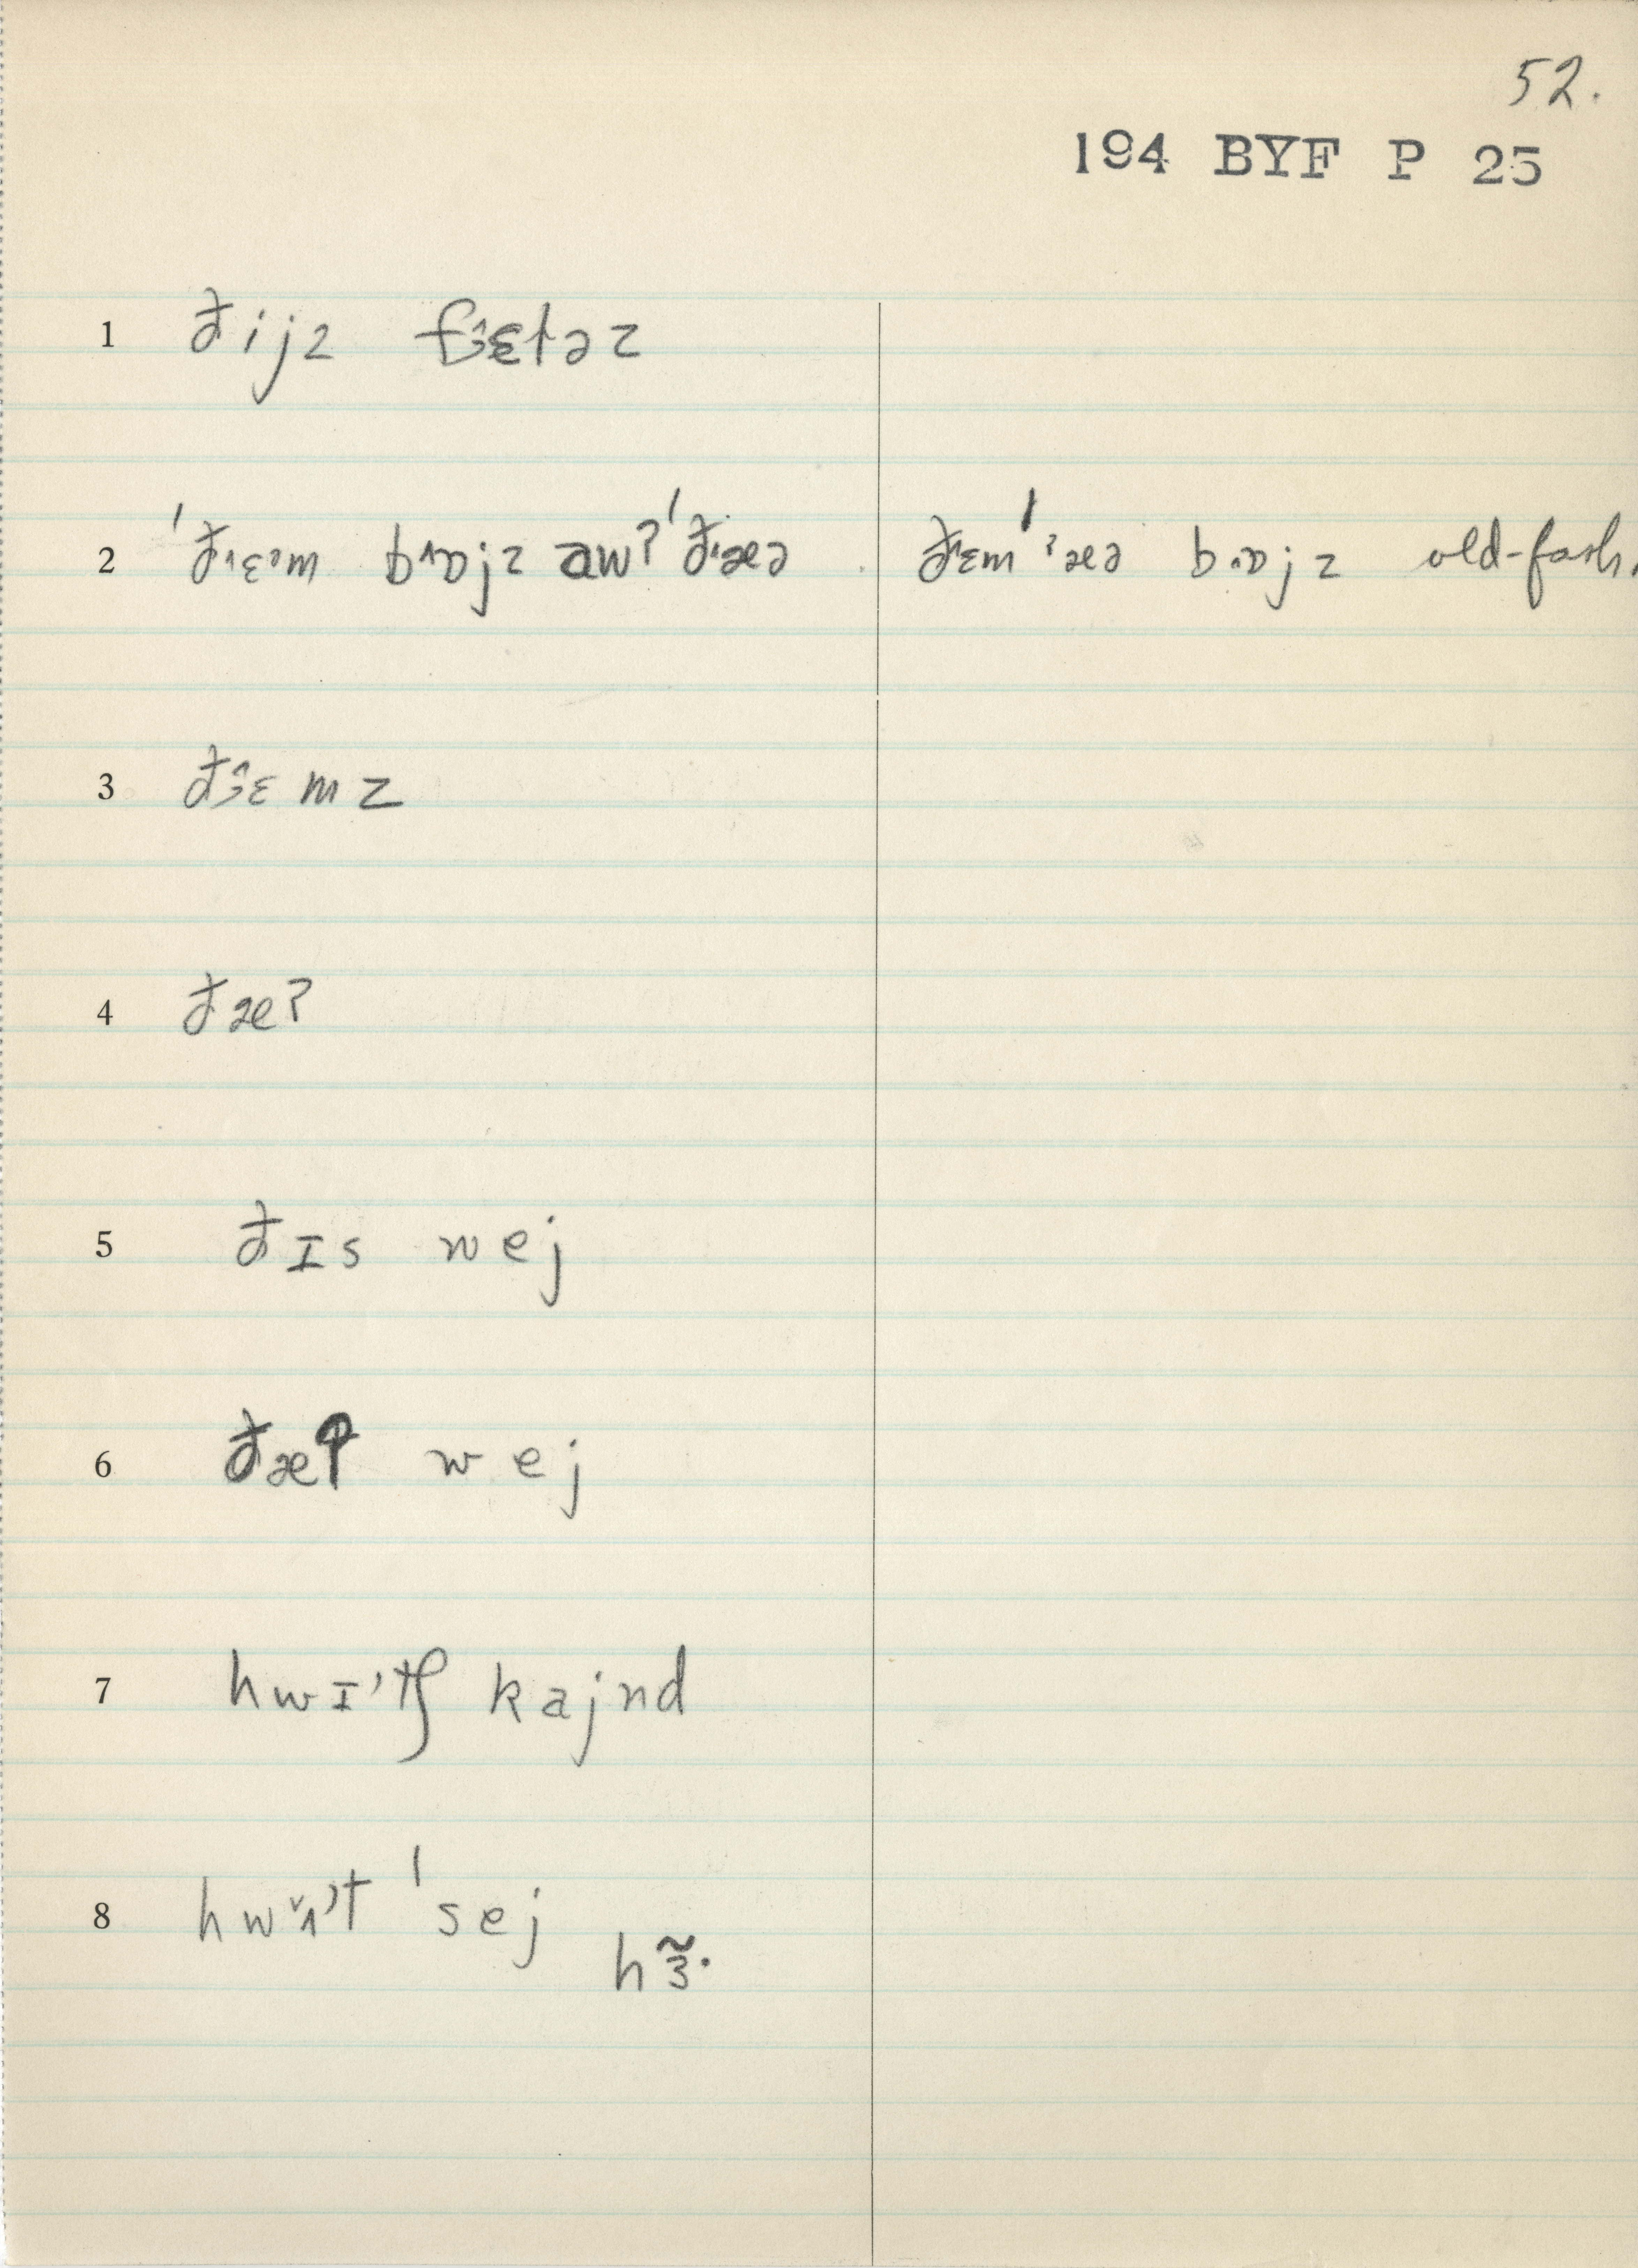 52.
194 BYF P 25
1 ðijz fɜ^ɛləz
2 ˈðɛˑm bɒjz awʔ ˈðæə ðɛm ˈˀæə bɒjz old-fash.
3 ðɜ^ɛmz
4 ðæʔ
5 ðɪs wej
6 ðæʔ wej
7 hwɪʼtʃ kajnd
8 hwɨ̌ʼt ˈsej
hɜ̃·